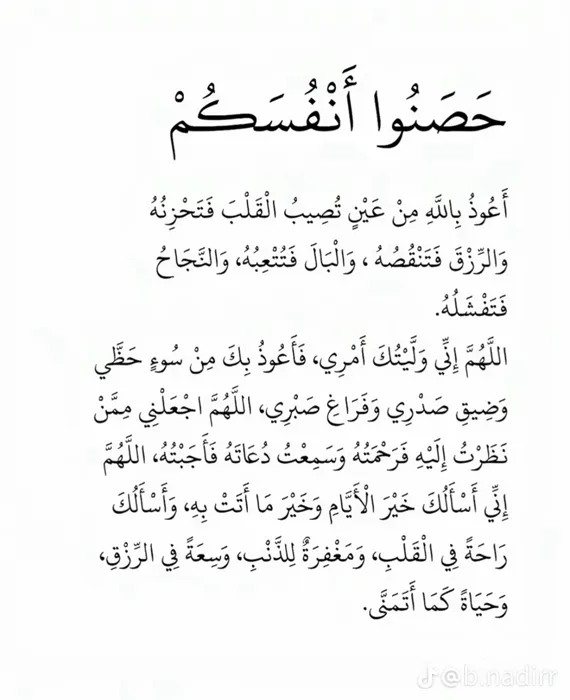 حَصَنُوا أَنْفُسَكُمْ
أَعُوذُ بِاللَّهِ مِنْ عَيْنٍ تُصِيبُ الْقَلْبَ فَتَحْزِنُهُ
وَالرِّزْقَ فَتَنْقُصُهُ ، وَالْبَالَ فَتُتْعِبُهُ، وَالنَّجَاحُ
فَتَفْشَلُهُ.
اللَّهُمَّ إِنِّي وَلَّيْتُكَ أَمْرِي، فَأَعُوذُ بِكَ مِنْ سُوءٍ حَظَّي
وَضِيقِ صَدْرِي وَفَرَاغِ صَبْرِي، اللَّهُمَّ اجْعَلْنِي مِمَّنْ
نَظَرْتُ إِلَيْهِ فَرَحْمَتُهُ وَسَمِعْتُ دُعَاتَهُ فَأَجَبْتُهُ، اللَّهُمَّ
إِنِّي أَسْأَلُكَ خَيْرَ الْأَيَّامِ وَخَيْرَ مَا أَتَتْ بِهِ، وَأَسْأَلُكَ
رَاحَةً فِي الْقَلْبِ، وَمَغْفِرَةٌ لِلذَّنْبِ، وَسِعَةً فِي الرِّزْقِ،
وَحَيَاةً كَمَا أَتَمَنَّى.
@b.nadirr